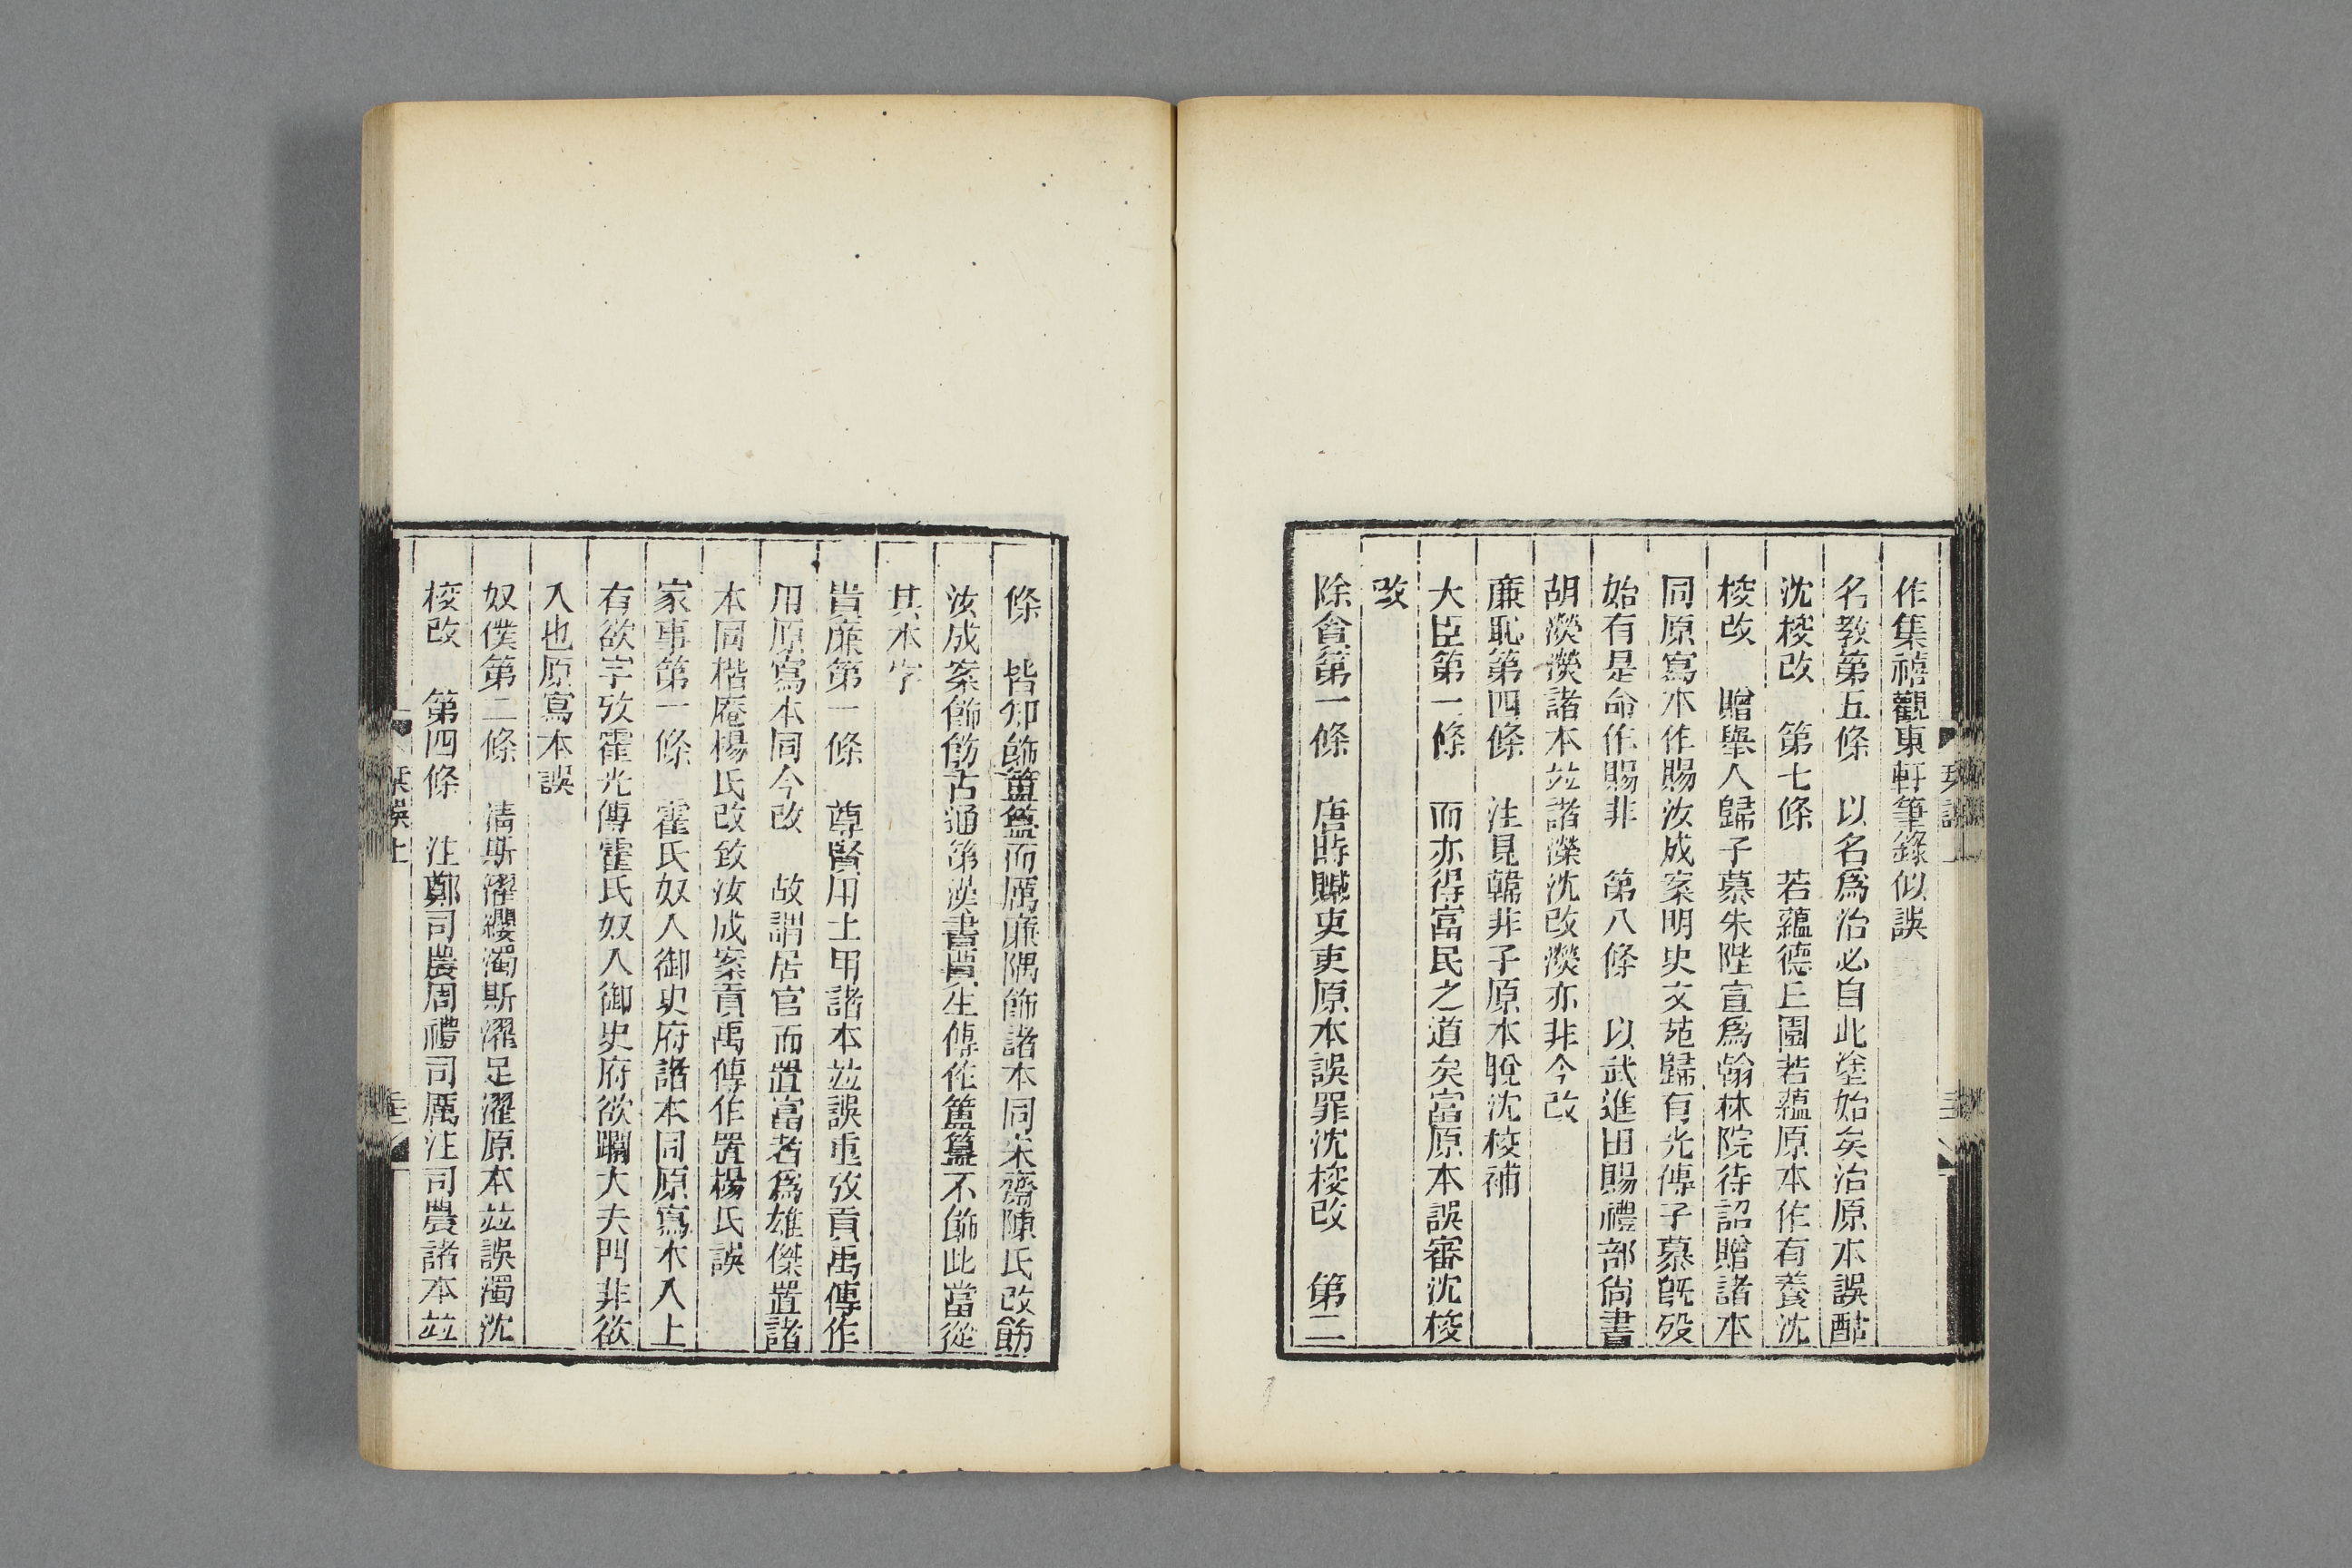 作集禧觀東軒筆錄似誤
名教第五條　以名爲治必自此塗始矣治原本誤酤
沈校改　第七條　若蘊德丘園若蘊原本作有養沈
校改　贈舉人歸子慕朱陛宣爲翰林院待詔贈諸本
同原寫本作賜汝成案明史文苑歸有光傳子慕旣歿
始有是命作賜非　第八條　以武進田賜禮部尙書
胡濙濙諸本竝譌濴沈改濙亦非今改
廉恥第四條　注見韓非子原本脫沈校補
大臣第一條　而亦得富民之道矣富原本誤審沈校
改
除貪第一條　唐時贓吏吏原本誤罪沈校改　第二
條　皆知飾簠簋而厲廉隅飾諸本同宋齋陳氏改飭
汝成案飾飭古通第漢書賈生傳作簠簋不飾此當從
其本字
貴廉第一條　尊賢用士用諸本竝誤重攷貢禹傳作
用原寫本同今改　故謂居官而置富者爲雄傑置諸
本同楷庵楊氏改致汝成案貢禹傳作置楊氏誤
家事第一條　霍氏奴入御史府諸本同原寫本入上
有欲字攷霍光傳霍氏奴入御史府欲躢大夫門非欲
入也原寫本誤
奴僕第二條　淸斯濯纓濁斯濯足濯原本竝誤濁沈
校改　第四條　注鄭司農周禮司厲注司農諸本竝